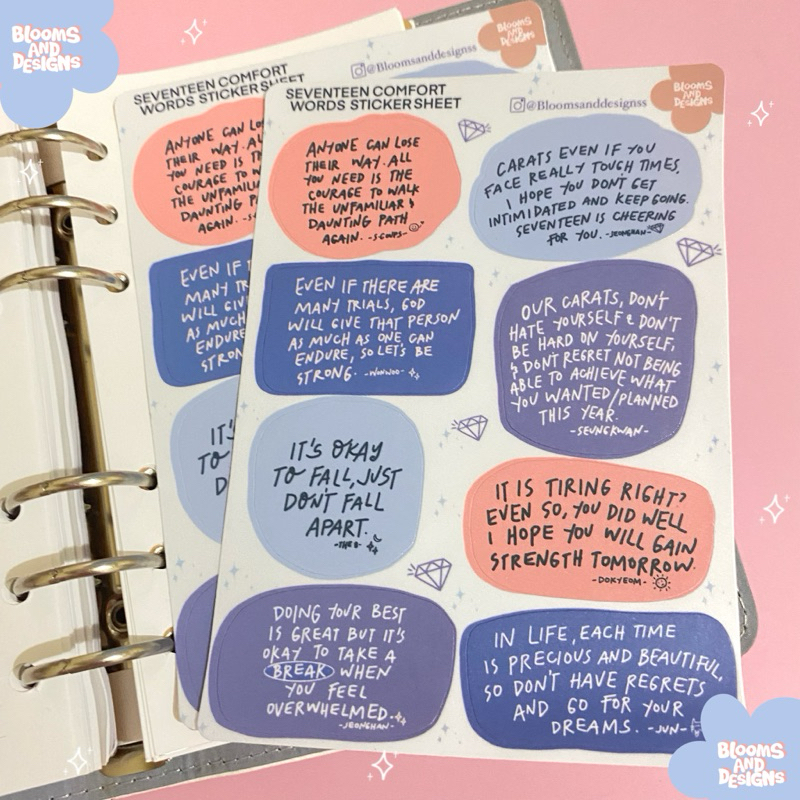 BLOOMS
AND
DESIGNS
SEVENTEEN COMFORT
WORDS STICKER SHEET
@Bloomsanddesignss
ANYONE CAN LO
THEIR WAY. AL
YOU NEED IS TH
COURAGE TO W
THE UNFAMILIA
DAUNTING P
AGAIN. -S
EVEN IF T
MANY TR
WILL GIV
AS MUCH
ENDURE
STRON
IT'S
TO
D
SEVENTEEN COMFORT
WORDS STICKER SHEET
@Bloomsanddesignss
BLOOMS
AND
DESIGNS
ANYONE CAN LOSE
THEIR WAY. ALL
YOU NEED IS THE
COURAGE TO WALK
THE UNFAMILIAR &
DAUNTING PATH
AGAIN. -S.COUPS-
CARATS EVEN IF YOU
FACE REALLY TOUGH TIMES,
I HOPE YOU DON'T GET
INTIMIDATED AND KEEP GOING.
SEVENTEEN IS CHEERING
FOR YOU. -JEONGHAN-
EVEN IF THERE ARE
MANY TRIALS, GOD
WILL GIVE THAT PERSON
AS MUCH AS ONE CAN
ENDURE, SO LET'S BE
STRONG. -WONWOO-
OUR CARATS, DON'T
HATE YOURSELF & DON'T
BE HARD ON YOURSELF,
& DON'T REGRET NOT BEING
ABLE TO ACHIEVE WHAT
YOU WANTED/PLANNED
THIS YEAR.
-SEUNGKWAN-
IT'S OKAY
TO FALL, JUST
DON'T FALL
APART.
-THE 8-
IT IS TIRING RIGHT?
EVEN SO, YOU DID WELL
I HOPE YOU WILL GAIN
STRENGTH TOMORROW.
-DOKYEOM-
DOING YOUR BEST
IS GREAT BUT IT'S
OKAY TO TAKE A
BREAK WHEN
YOU FEEL
OVERWHELMED.
-JEONGHAN-
IN LIFE, EACH TIME
IS PRECIOUS AND BEAUTIFUL,
SO DON'T HAVE REGRETS
AND GO FOR YOUR
DREAMS. -JUN-
BLOOMS
AND
DESIGNS